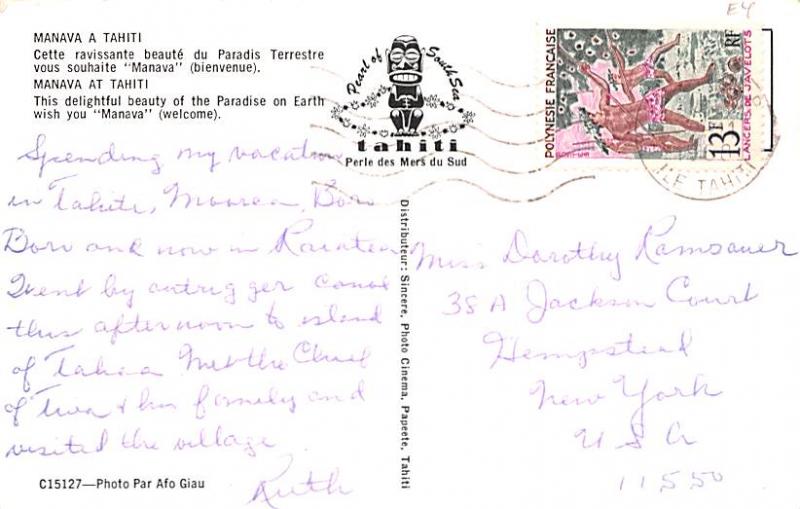 E4
MANAVA A TAHITI
Cette ravissante beauté du Paradis Terrestre
vous souhaite "Manava" (bienvenue).
MANAVA AT TAHITI
This delightful beauty of the Paradise on Earth
wish you "Manava" (welcome).
Pearl of South Seas
tahiti
Perle des Mers du Sud
POLYNESIE FRANÇAISE
13F
RF
LANCERS DE JAVELOTS
ILE TAHITI
Spending my vacation
in Tahiti, Moorea, Bora
Bora and now in Raiatea
Went by outrigger canoe
this afternoon to island
of Tahaa Met the Chief
of Tiva & his family and
visited the village
Ruth
C15127—Photo Par Afo Giau
Distributeur: Sincere, Photo Cinema, Papeete, Tahiti
Miss Dorothy Ramsauer
35 A Jackson Court
Hempstead
New York
USA
11550